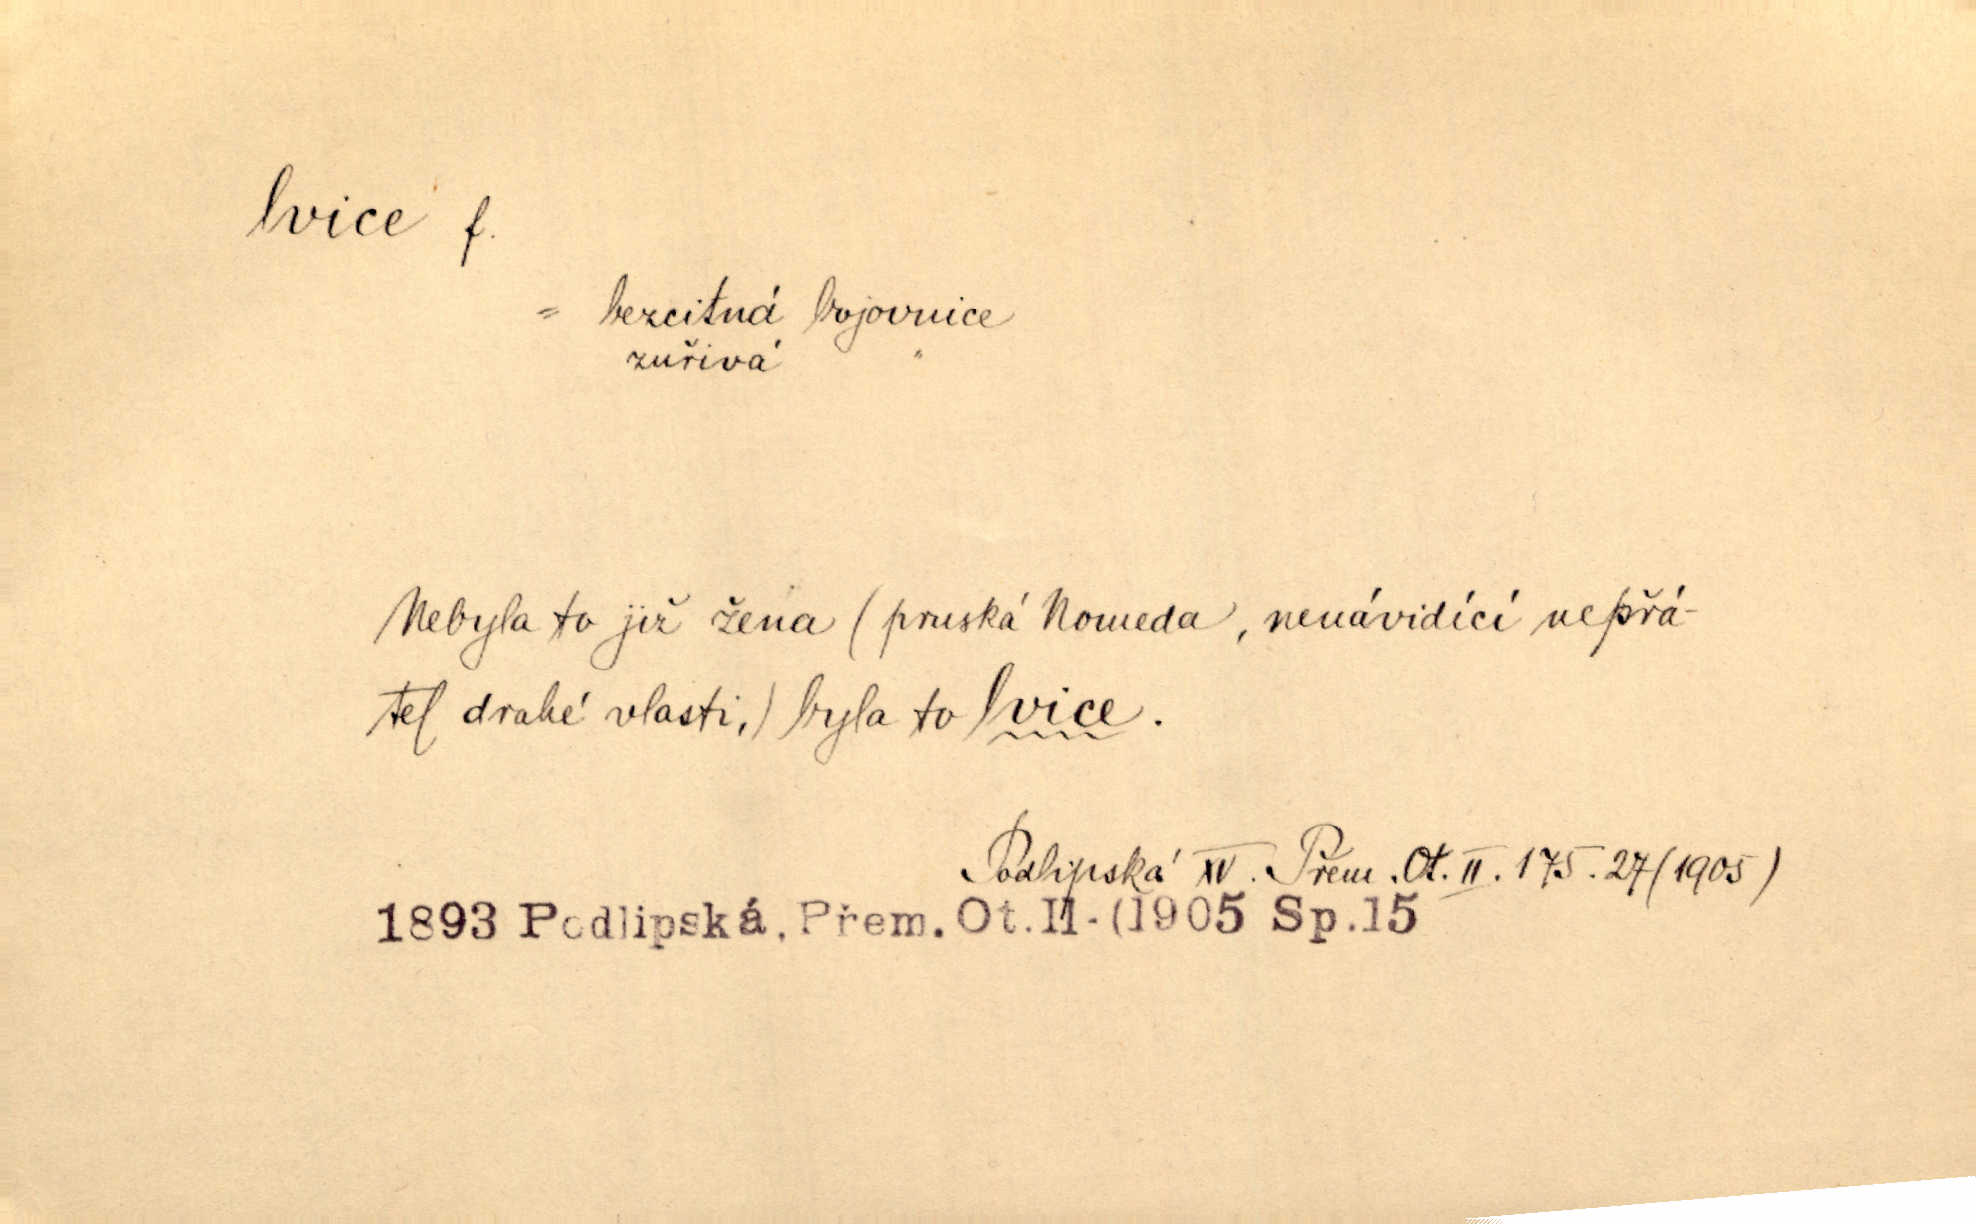 lvice f.
= bezcitná bojovnice
zuřivá "
Nebyla to již žena (pruská Nomeda, nenávidící nepřá-
tel drahé vlasti,) byla to lvice.
Podlipská XV. Přem. Ot. II. 175. 27 (1905)
1893 Podlipská, Přem. Ot. II - (1905 Sp. 15